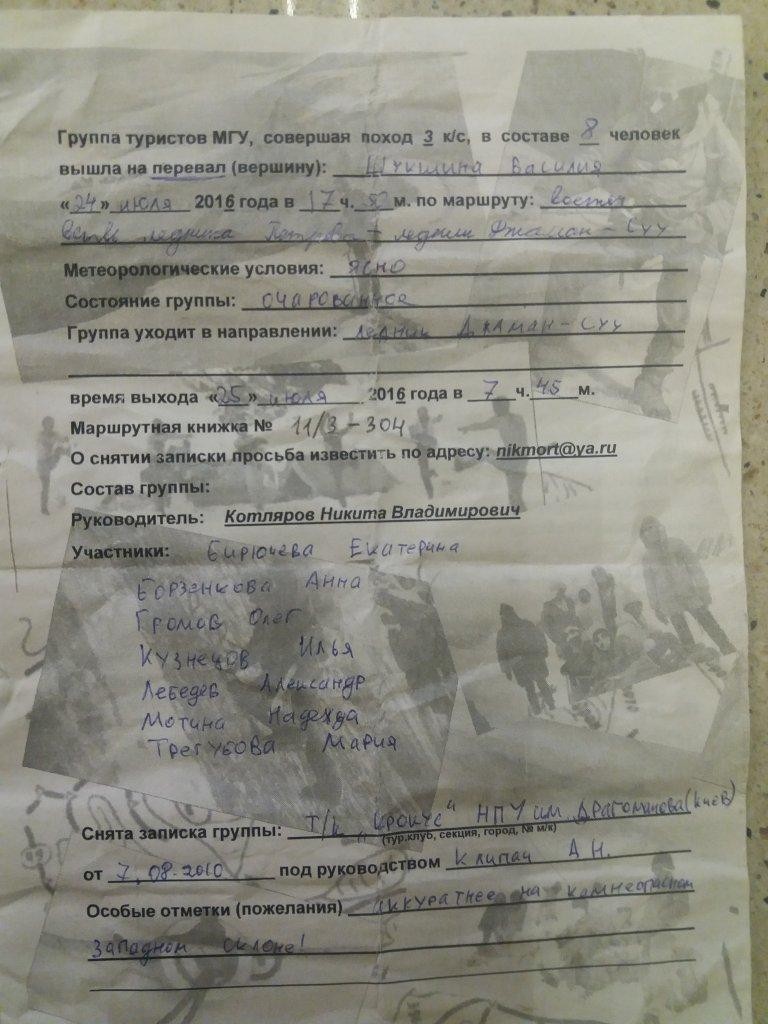 Группа туристов МГУ, совершая поход 3 к/с, в составе 8 человек
вышла на перевал (вершину): Шукшина Василия
«24» июля 2016 года в 17 ч. м. по маршруту:
ледника Петрова + ледник Джаман-Суу
Метеорологические условия: ясно
Состояние группы: очарованное
Группа уходит в направлении: ледник Джаман-Суу
время выхода «25» июля 2016 года в 7 ч. 45 м.
Маршрутная книжка № 11/3-304
О снятии записки просьба известить по адресу: nikmort@ya.ru
Состав группы:
Руководитель: Котляров Никита Владимирович
Участники: Бирючева Екатерина
Борзенкова Анна
Громов Олег
Кузнецов Илья
Лебедев Александр
Мотина Надежда
Трегубова Мария
Снята записка группы: т/к "Крокус" НПУ им. Драгоманова (Киев)
(тур.клуб, секция, город, № м/к)
от 7.08.2010 под руководством А Н.
Особые отметки (пожелания) аккуратнее на камнеопасном
западном склоне!